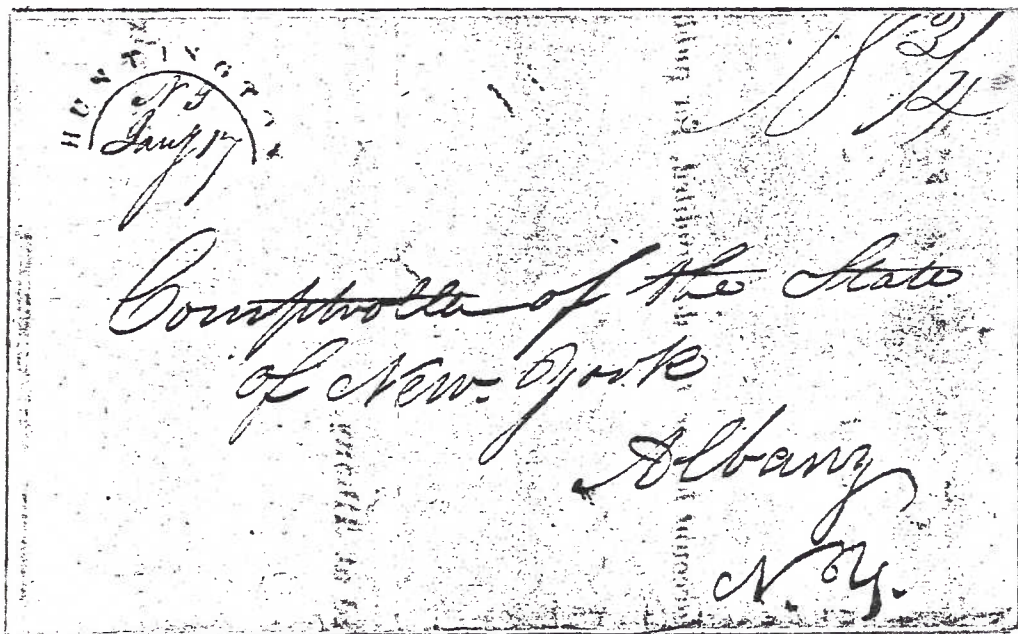 HUNTINGTON
NY
Jany 17
18 3/4
Comptroller of the State
of New-York
Albany
N. Y.